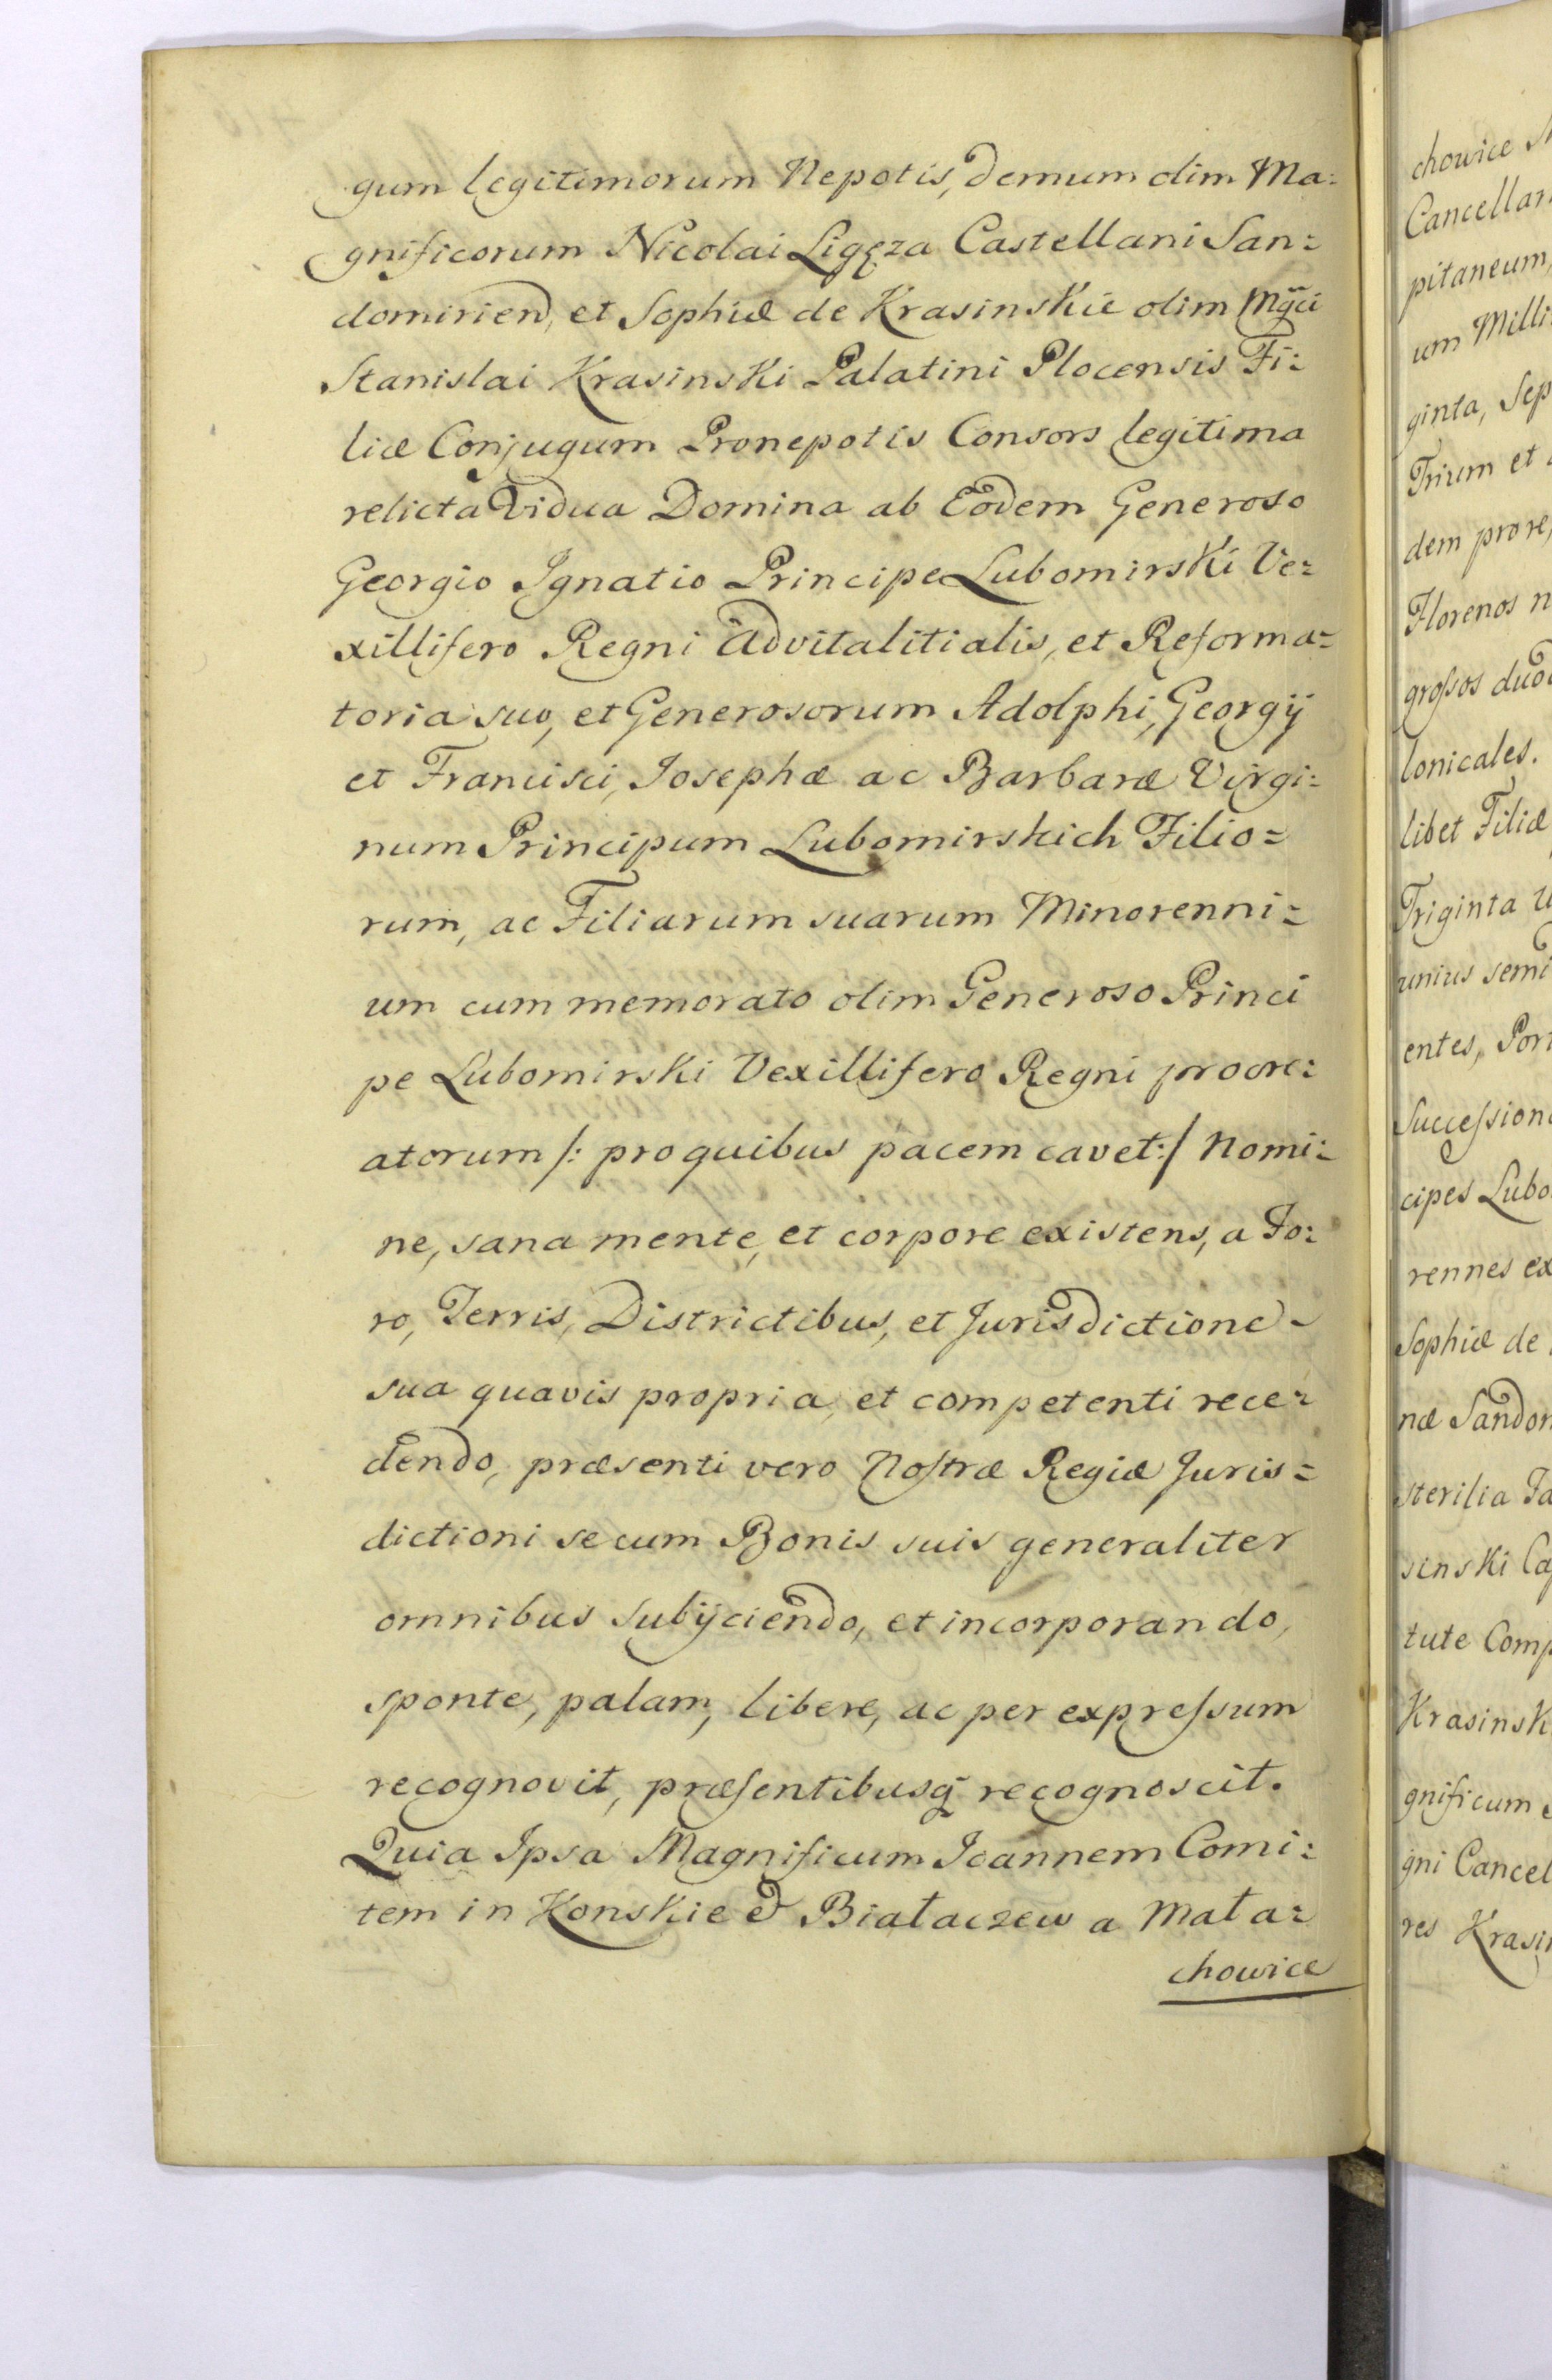 gum legitimorum Nepotis, demum olim Ma:
gnificorum Nicolai Ligęza Castellani San=
domirien, et Sophiæ de Krasinskie olim Mgci
Stanislai Krasinski Palatini Plocensis Fi:
liæ Conjugum Pronepotis Consors legitima
relicta Vidua Domina ab Eodem Generoso
Georgio Ignatio Principe Lubomirski Ve=
xillifero Regni Advitalitialis, et Reforma=
toria suo, et Generosorum Adolphi, Georgij
et Francisci, Josephæ ac Barbaræ Virgi:
num Principum Lubomirskich Filio=
rum, ac Filiarum suarum Minorenni=
um cum memorato olim Generoso Princi
pe Lubomirski Vexillifero Regni procre:
atorum /: pro quibus pacem cavet :/ Nomi:
ne, sana mente, et corpore existens, a Fo:
ro, Terris, Districtibus, et Jurisdictione
sua quavis propria, et competenti rece=
dendo, præsenti vero Nostræ Regiæ Juris=
dictioni se cum Bonis suis generaliter
omnibus subijciendo, et incorporando,
sponte, palam, libere, ac per expressum
recognovit, præsentibusq recognoscit.
Quia Ipsa Magnificum Joannem Comi:
tem in Konskie & Białaczew a Mała=
chowice
chowice
Cancellar
pitaneum,
um Milli
ginta, Sep
Trium et
dem pro re
Florenos n
grossos duo
lonicales.
libet Filiæ
Triginta
unius semi
entes, Por
Succession
cipes Lubo
rennes ex
Sophiæ de
næ Sandom
sterilia
sinski Ca
tute Comp
Krasinsk
gnificum
gni Cancel
res Krasin